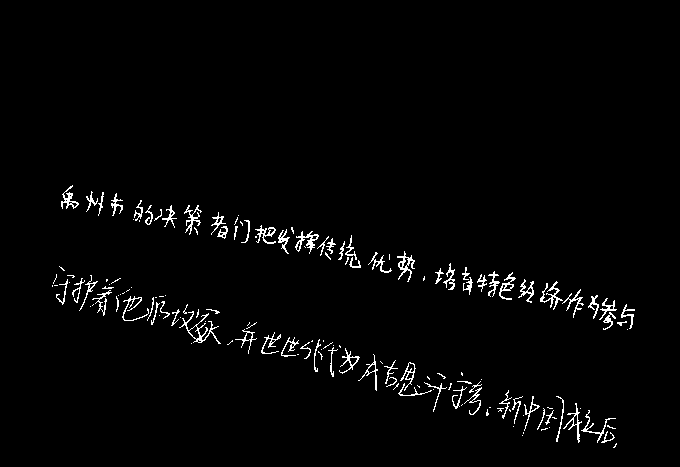 禹州市的决策者们把发挥传统优势，培育特色经济作为参与
守护着他的坟冢，并世世代代为成吉思汗守陵。新中国成立后，